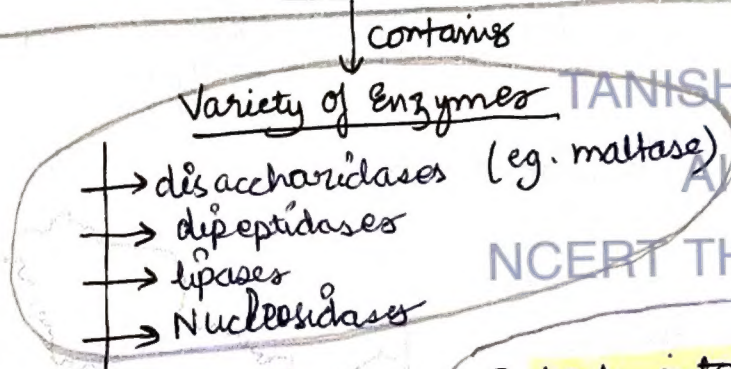 contains
Variety of Enzymes
TANISH
→ disaccharidases (eg. maltase)
→ dipeptidases
→ lipases
NCERT TH
→ Nucleosidases